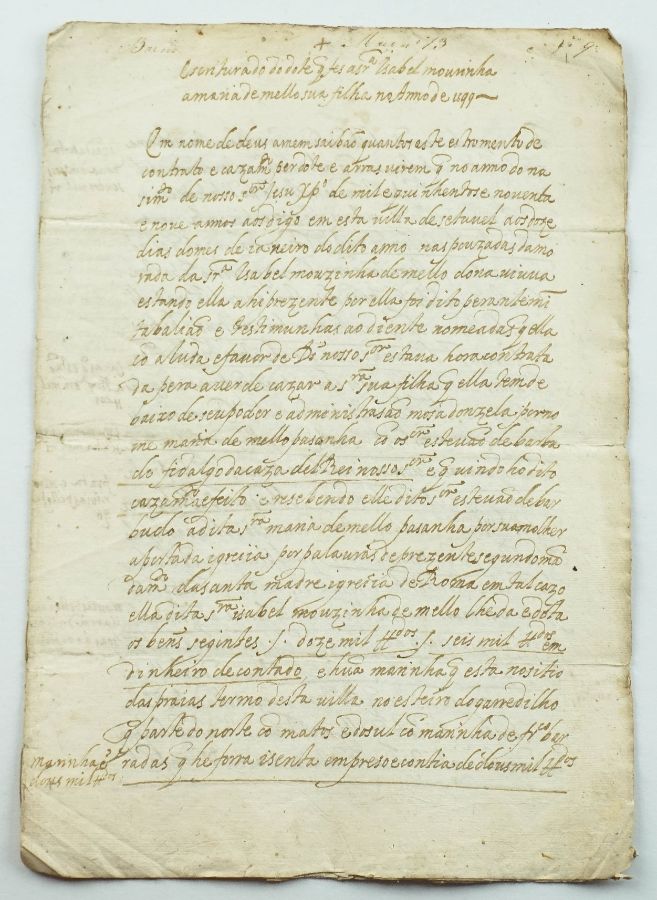 Escritura do dote q̃ fes a s.ra Isabel mouzinha
a maria de mello sua filha no Anno de 1599
Em nome de deus amem saibão quantos este estromento de
contrato e cazam.to per dote e arras virem q̃ no anno do na
sim.to de nosso s.or Jesu Xp.o de mil e quinhentos e noventa
e nove annos aos digo em esta villa de setuvel aos doze
dias do mes de janeiro do dito anno nas pouzadas da mo
rada da s.ra Isabel mouzinha de mello dona viuva
estando ella ahi prezente por ella foi dito perante mĩ
tabalião e testimunhas ao diente nomeadas q̃ ella
cõ a iuda e favor de Ds nosso s.or estava hora contrata
da pera aver de cazar a s.ra sua filha q̃ ella tem de
baixo de seu poder e administrasão mosa donzela per no
me maria de mello pasanha cõ o s.or estevão de barbu
do fidalgo da caza del Rei nosso s.or e q̃ vindo ho dito
cazam.to a efeito e resebendo elle dito s.or estevão de bar
budo a dita s.ra maria de mello pasanha por sua molher
a porta da igreiia por palauras de prezente segundo man
dam.to da santa madre igreiia de Roma em tal cazo
ella dita s.ra isabel mouzinha de mello lhe da e dota
os bens segintes .s. doze mil #dos .s. seis mil #dos em
dinheiro de contado, e hũa marinha q̃ esta no sitio
das praias termo desta villa no esteiro do garredilho
q̃ parte do norte cõ matos e do sul cõ marinha de fr.co bar
radas q̃ he forra isenta em preso e contia de dous mil #dos
marinha p.r
dous mil #dos